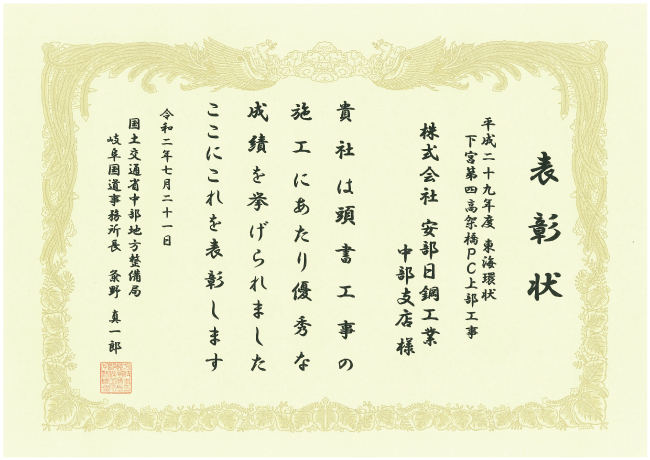 表彰状
平成二十九年度 東海環状
下宮第四高架橋PC上部工事
株式会社 安部日鋼工業
中部支店 様
貴社は頭書工事の
施工にあたり優秀な
成績を挙げられました
ここにこれを表彰します
令和二年七月二十一日
国土交通省中部地方整備局
岐阜国道事務所長 粂野 真一郎